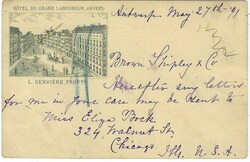 HÔTEL DU GRAND LABOUREUR, ANVERS.
Antwerp May 27th
L. SERVIÈRE, PROPRE
Brown Shipley & Co
Hereafter any letters
for me in your care may be sent to
Miss Eliza Bock
324 Walnut St
Chicago.
Ills. U.S.A.